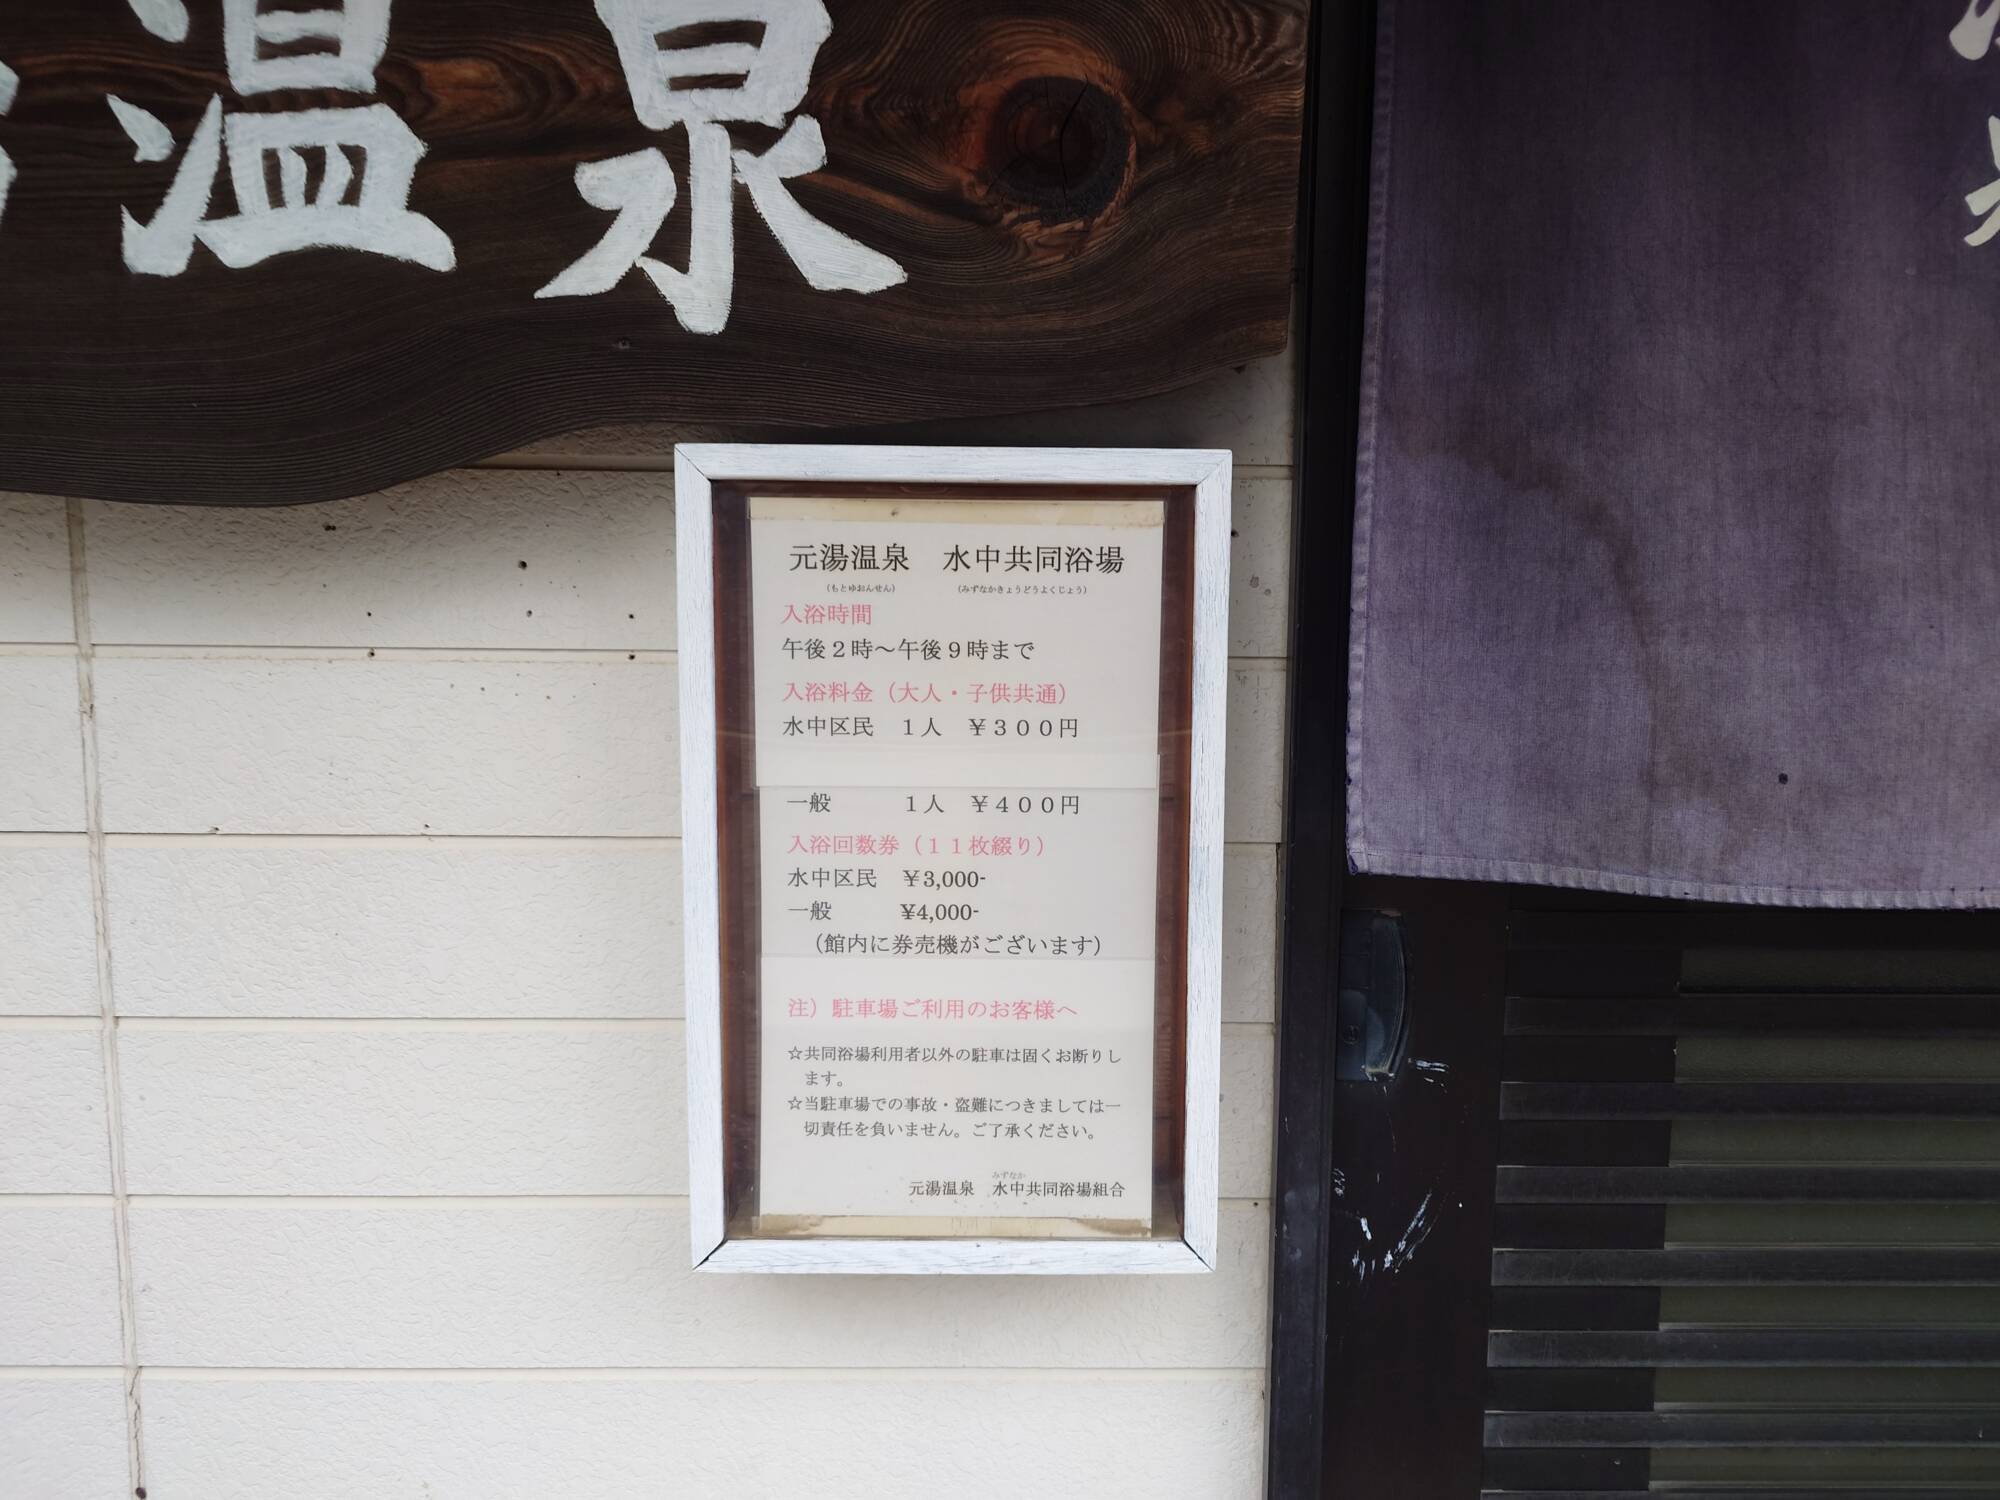 温泉
元湯温泉　水中共同浴場
（もとゆおんせん）　（みずなかきょうどうよくじょう）
入浴時間
午後２時～午後９時まで
入浴料金（大人・子供共通）
水中区民　１人　￥３００円
一般　１人　￥４００円
入浴回数券（１１枚綴り）
水中区民　￥3,000-
一般　¥4,000-
（館内に券売機がございます）
注）駐車場ご利用のお客様へ
☆共同浴場利用者以外の駐車は固くお断りし
ます。
☆当駐車場での事故・盗難につきましては一
切責任を負いません。ご了承ください。
みずなか
元湯温泉　水中共同浴場組合